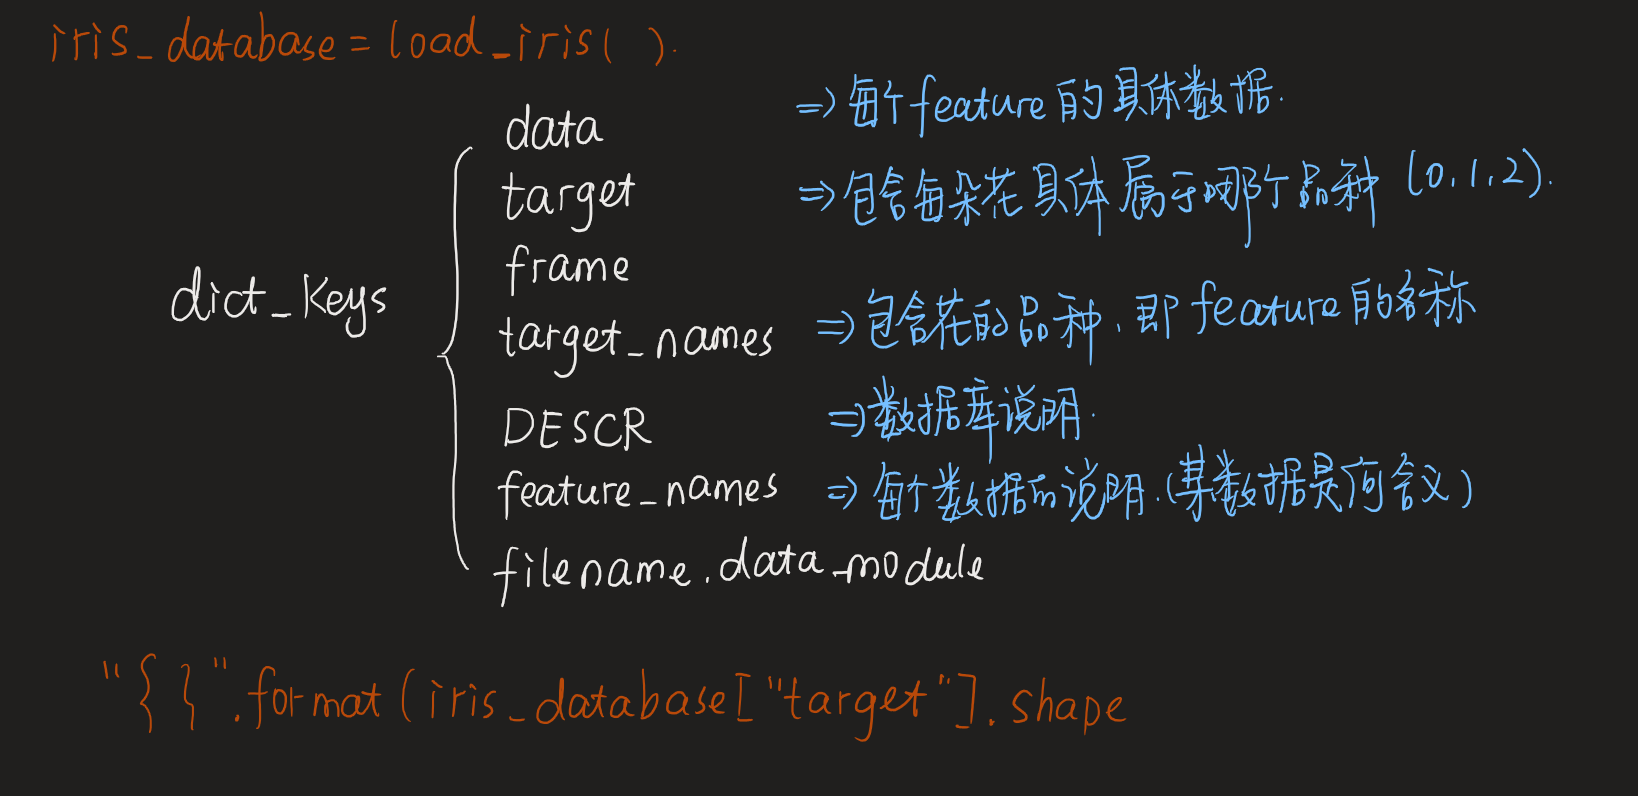 iris_database = load_iris( ).
data => 每个feature的具体数据.
target => 包含每朵花具体属于哪个品种 (0,1,2).
frame
dict_keys
target_names => 包含花的品种,即feature的名称
DESCR => 数据库说明.
feature_names => 每个数据的说明.(某数据是何含义)
filename.data_module
"{ }".format(iris_database["target"].shape